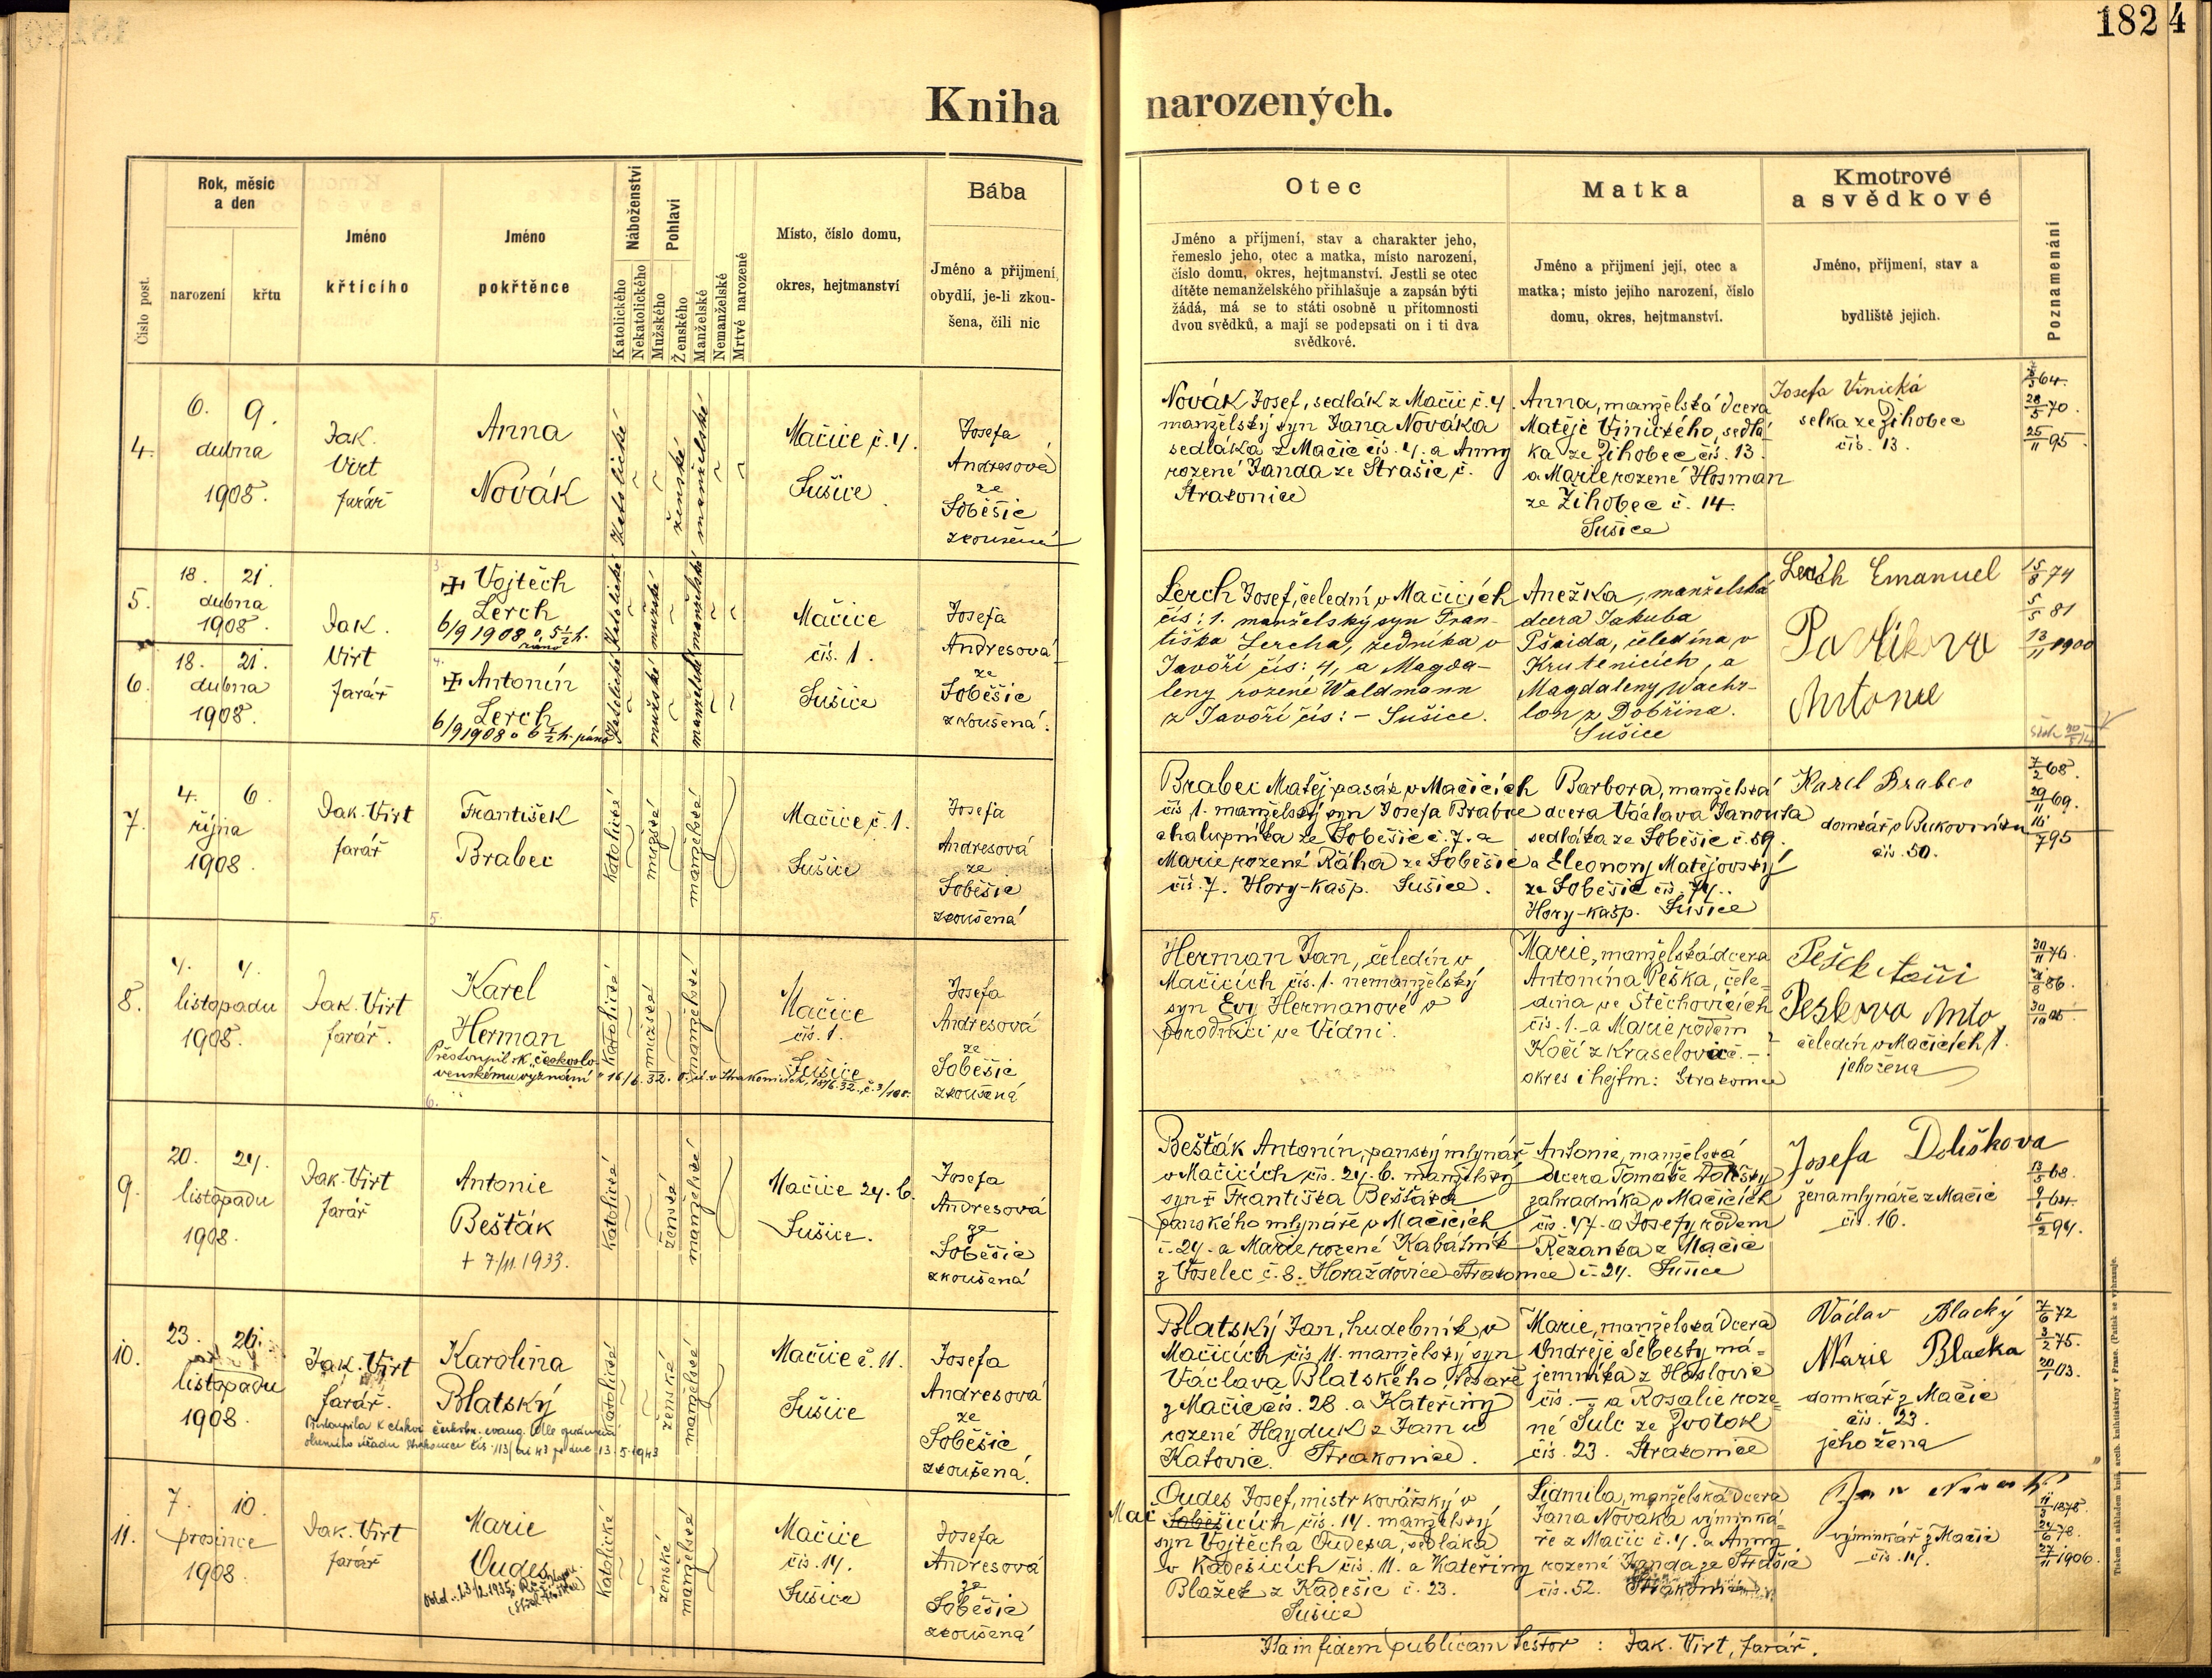 182 4
Kniha narozených.
Číslo post.
Rok, měsíc
a den
narození
křtu
Jméno
křtícího
Jméno
pokřtěnce
Náboženství
Katolického
Nekatolického
Pohlaví
Mužského
Ženského
Manželské
Nemanželské
Mrtvé narozené
Místo, číslo domu,
okres, hejtmanství
Bába
Jméno a příjmení,
obydlí, je-li zkou-
šena, čili nic
Otec
Jméno a příjmení, stav a charakter jeho,
řemeslo jeho, otec a matka, místo narození,
číslo domu, okres, hejtmanství. Jestli se otec
dítěte nemanželského přihlašuje a zapsán býti
žádá, má se to státi osobně u přítomnosti
dvou svědků, a mají se podepsati on i ti dva
svědkové.
Matka
Jméno a příjmení její, otec a
matka; místo jejího narození, číslo
domu, okres, hejtmanství.
Kmotrové
a svědkové
Jméno, příjmení, stav a
bydliště jejich.
Poznamenání
4.
6. 9.
dubna
1908.
Jak.
Virt
farář
Anna
Novák
katolické
ženské
manželské
Mačice č. 4.
Sušice
Josefa
Andresová
ze
Soběšic
zkoušená
Novák Josef, sedlák z Mačic č. 4.
manželský syn Jana Nováka
sedláka z Mačic čís. 4. a Anny
rozené Janda ze Strašic č.
Strakonice
Anna, manželská dcera
Matěje Vinického, sedlá-
ka ze Žihobec čís. 13.
a Marie rozené Hosman
ze Žihobec č. 14.
Sušice
Josefa Vinická
selka ze Žihobec
čís. 13.
64.
28/5 70.
25/11 95.
5.
18. 21.
dubna
1908.
Jak.
Virt
farář
Vojtěch
Lerch
6/9 1908 o 5 1/2 h.
ráno
katolické
mužské
manželské
Mačice
čís. 1.
Sušice
Josefa
Andresová
ze
Soběšic
zkoušená.
6.
18. 21.
dubna
1908.
Antonín
Lerch
6/9 1908 o 6 1/2 h. ráno
katolické
mužské
manželské
Lerch Josef, čeledín v Mačicích
čís: 1. manželský syn Fran-
tiška Lercha, zedníka v
Javoří čís: 4, a Magda-
leny rozené Waldmann
z Javoří čís: – Sušice.
Anežka, manželská
dcera Jakuba
Pšaida, čeledína v
Krutěnicích, a
Magdaleny Wachr-
lon z Dobřína.
Sušice
Lerch Emanuel
Pavlikova
Antonie
15/8 74
5/5 81
13/11 1900
7.
4. 6.
října
1908.
Jak. Virt
farář
František
Brabec
katolické
mužské
manželské
Mačice č. 1.
Sušice
Josefa
Andresová
ze
Soběšic
zkoušená
Brabec Matěj pasák v Mačicích
čís 1. manželský syn Josefa Brabce
chalupníka ze Soběšic č. 7. a
Marie rozené Ráha ze Soběšic
čís. 7. Hory-Kašp. Sušice.
Barbora, manželská
dcera Václava Janouta
sedláka ze Soběšic č. 59.
a Eleonory Matějovský
ze Soběšic čís. 74.
Hory-Kašp. Sušice
Karel Brabec
domkář v Bukovníku
čís. 50.
7/2 68.
29/11 69.
16/7 95
8.
4. 4.
listopadu
1908.
Jak. Virt
farář.
Karel
Herman
Přestoupil k českoslo-
venskému vyznání
katolické
mužské
manželské
Mačice
čís. 1.
Sušice
Josefa
Andresová
ze
Soběšic
zkoušená
Herman Jan, čeledín v
Mačicích čís. 1. nemanželský
syn Evy Hermanové v
porodnici ve Vídni.
Marie, manželská dcera
Antonína Peška, čele-
dína ve Štěchovicích
čís. 1. a Marie rodem
Kočí z Kraselovic č. –
okres i hejtm: Strakonice
Peškova Anto
čeledín v Mačicích 1.
jeho žena
30/11 76.
86.
9.
20. 24.
listopadu
1908.
Jak. Virt
farář
Antonie
Bešťák
† 7/11. 1933.
katolické
ženské
manželské
Mačice 24. b.
Sušice.
Josefa
Andresová
ze
Soběšic
zkoušená
Bešťák Antonín, panský mlynář
v Mačicích čís. 24. b. manželský
syn † Františka Bešťáka
panského mlynáře v Mačicích
č. 24. a Marie rozené Kabátník
z Voselec č. 8. Horažďovice Strakonice
Antonie, manželská
dcera Tomáše Dolišky
zahradníka v Mačicích
čís. 47. a Josefy rodem
Řezanka z Mačic
č. 24. Sušice
Josefa Doliškova
žena mlynáře z Mačic
čís. 16.
13/5 68.
9/1 64.
5/2 94.
10.
23. 26.
listopadu
1908
Jak. Virt
farář.
Karolina
Blatský
katolické
ženské
manželské
Mačice č. 11.
Sušice
Josefa
Andresová
ze
Soběšic
zkoušená.
Blatský Jan, hudebník v
Mačicích čís 11. manželský syn
Václava Blatského, tesaře
z Mačic čís. 28. a Kateřiny
rozené Hayduk z Jam u
Katovic. Strakonice.
Marie, manželská dcera
Ondřeje Šebesty ná-
jemníka z Hoslovic
čís. – a Rosalie roze-
né Šulc ze Zvotok
čís. 23. Strakonice
Václav Blacký
Marie Blacka
domkář z Mačic
čís. 23.
jeho žena
7/6 72
3/2 75.
20/1 03.
11.
7. 10.
prosince
1908
Jak. Virt
farář
Marie
Oudes
katolické
ženské
manželské
Mačice
čís. 14.
Sušice
Josefa
Andresová
ze
Soběšic
zkoušená
Oudes Josef, mistr kovářský v
Mač Soběšicích čís. 14. manželský
syn Vojtěcha Oudesa, sedláka
v Kadešicích čís. 11. a Kateřiny
Blažek z Kadešic č. 23.
Sušice
Lidmila, manželská dcera
Jana Nováka výminká-
ře z Mačic č. 4. a Anny
rozené Janda ze Strašic
čís. 52. Strakonice
Jan Novák
výminkář z Mačic
čís. 4.
11/3 1878.
24/6 78.
27/11 1906.
Ita in fidem publicam testor : Jak. Virt, farář.